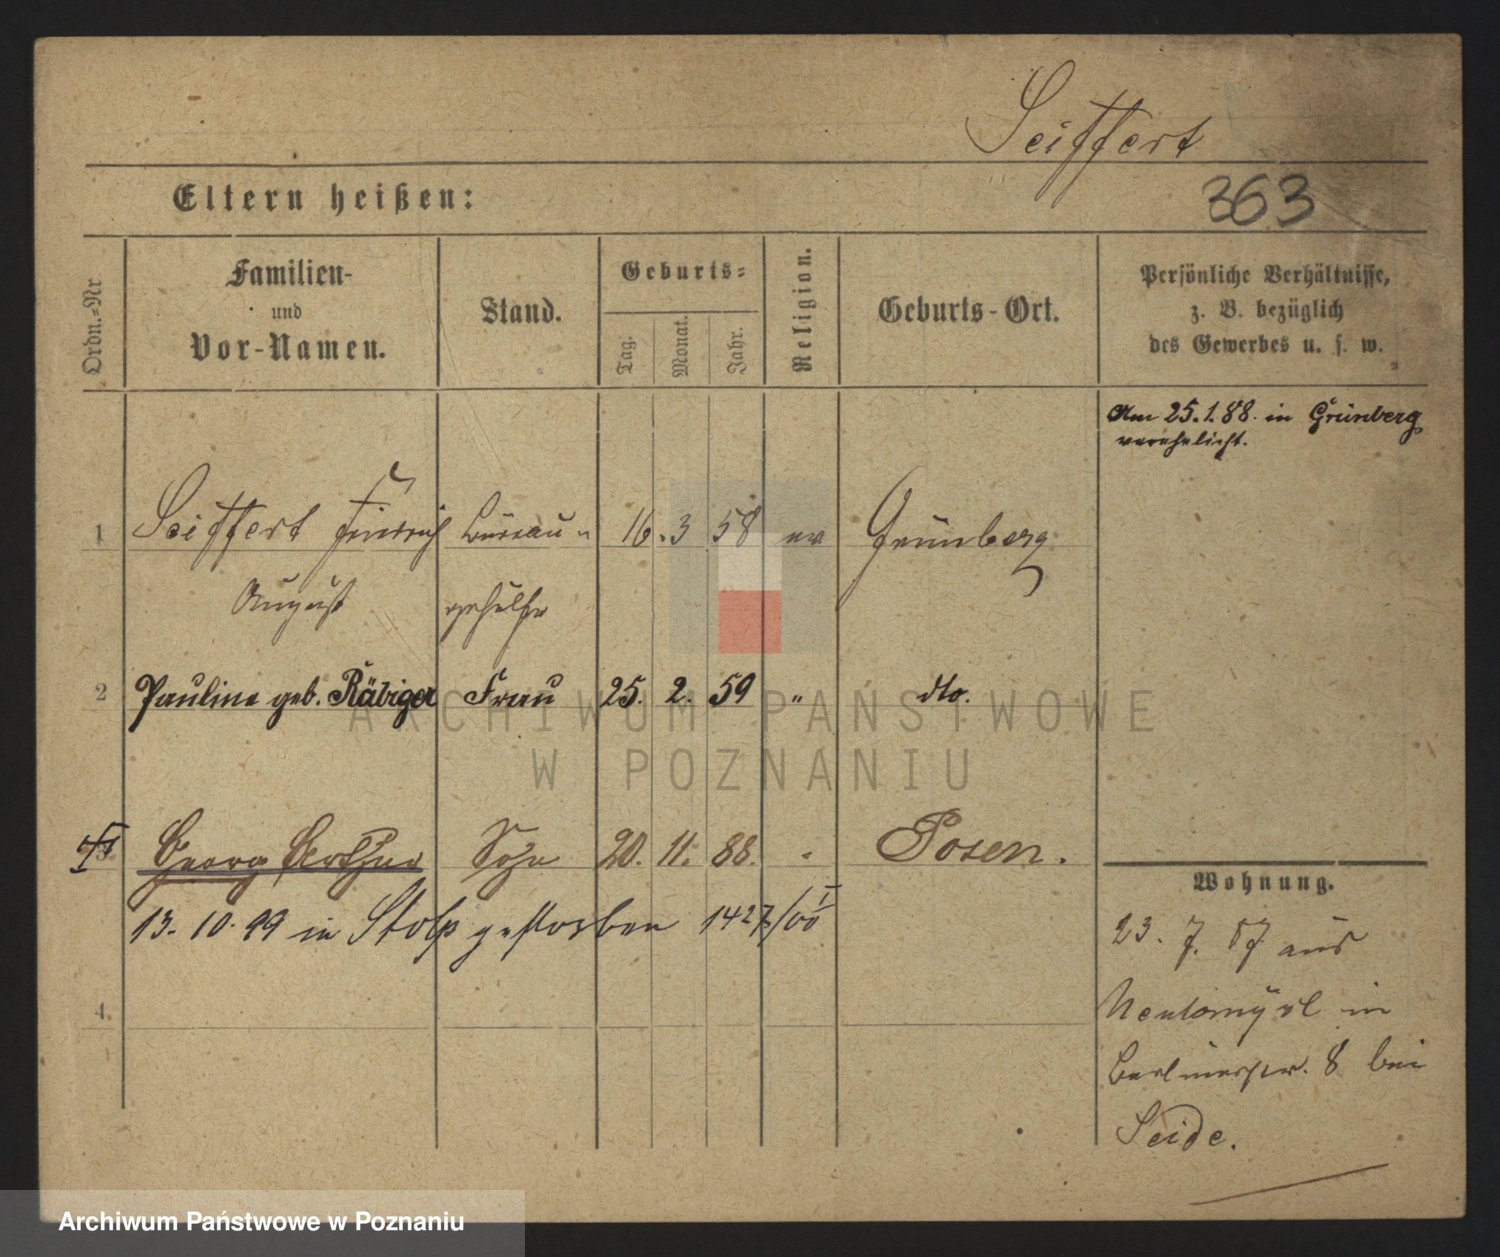 Seiffert
363
Eltern heißen:
Ordn.-Nr
Familien-
und
Vor-Namen.
Stand.
Geburts-
Tag.
Monat.
Jahr.
Religion.
Geburts-Ort.
Persönliche Verhältnisse,
z. B. bezüglich
des Gewerbes u. s. w.
Am 25.1.88. in Grünberg
verehelicht.
1 Seiffert Heinrich Büreau- 16. 3 58 ev Grünberg
August gehülfe
2 Pauline geb. Räbiger Frau 25. 2. 59 " dto.
3. Georg Arthur Sohn 20. 11. 88. " Posen.
13. 10. 99 in Stolp gestorben 1427/00 I
4.
Wohnung.
23. 7. 87 aus
Neutomysl in
Berlinerstr. 8 bei
Seide.
ARCHIWUM PAŃSTWOWE
W POZNANIU
Archiwum Państwowe w Poznaniu